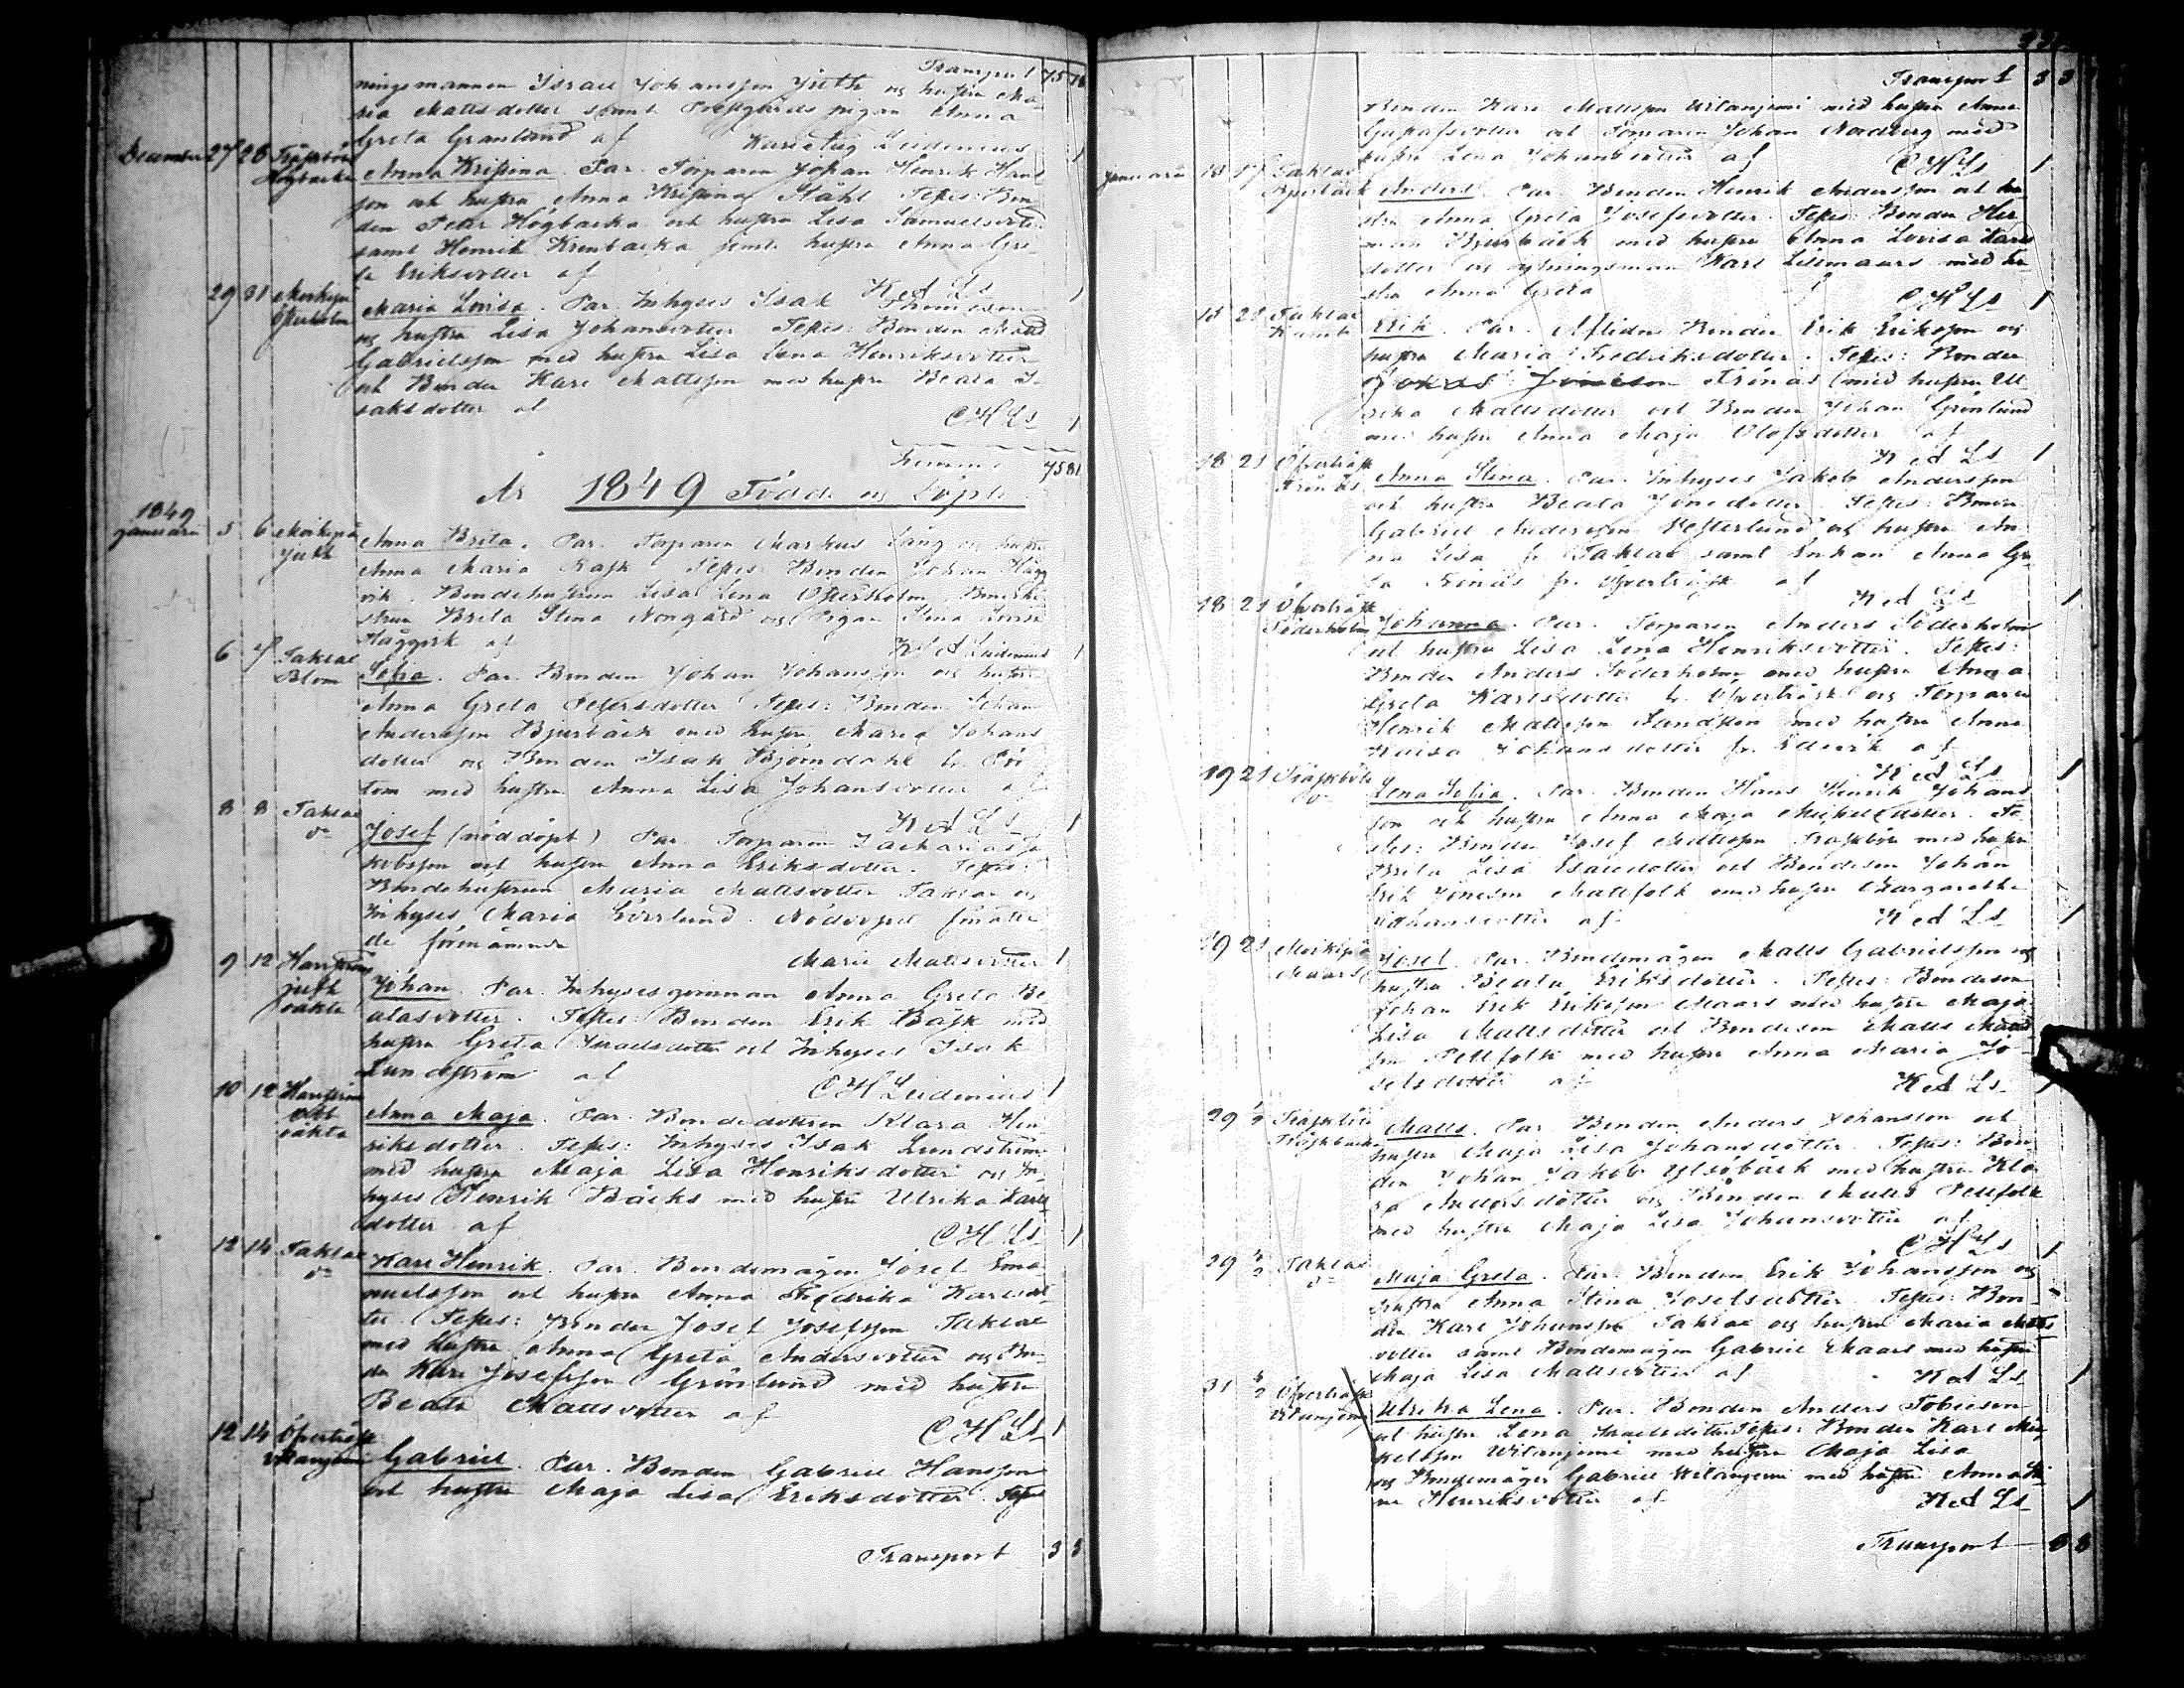 Transport 75
ningsmannen Israel Johansson Jreth og hustru Ma-
ria Mattsdotter samt Prestgårds pigan Anna
Greta Granlund af
December 27 28 Träskböle Högbacka
Anna Kristina. Par. Torparen Johan Henrik Hans
son och hustru Anna Kristina Ståhl Testes: Bon
den Peter Högbacka och hustru Lisa Samuelsdotter
samt Henrik Krenbacka jemte hustru Anna Gre-
ta Eriksdotter af K A Ls 1
29 31
Maria Lovisa. Par. Inhyses Isak Thomasson
og hustru Lisa Johansdotter Testes: Bonden Matts
Gabrielsson med hustru Lisa Lena Henriksdotter
och Bonden Karl Mattsson med hustru Beata I-
saksdotter af O H Ls 1
Summa 75 81
År 1849 Födde og Döpte
1849 Januari 5 6
Anna Brita. Par. Torparen Markus Lång og hustru
Anna Maria Rask Testes Bonden Johan Hägg
vik. Bondehustrun Lisa Lena Österholm.
Brita Stina Norrgård og Pigan Stina Lovisa
Häggvik af K A Leidenius 1
6 7 Taklax Blom
Sofia. Par. Bonden Johan Johansson og hustru
Anna Greta Petersdotter Testes: Bonden Johan
Andersson Bjurbäck med hustru Maria Johans
dotter og Bonden Isak Björndahl fr Pör
tom med hustru Anna Lisa Johansdotter af
8 8 Taklax K A Ls 1
Josef (nöddöpt) Par. Torparen Zacharias Ja
kobsson och hustru Anna Eriksdotter. Testes:
Bondehustrun Maria Mattsdotter Taklax og
Inhyses Maria Löfslund. Nöddopet förrätta
de förenämnde Maria Mattsdotter 1
9 12 Harrström
Johan. Par. Inhyses qvinnan Anna Greta Be
atasdotter. Testes: Bonden Erik Bäsk med
hustru Greta Israelsdotter och Inhyses Isak
Lundström af O H Leidenius 1
10 12 Harrström oäkta
Anna Maja. Par. Bondedottren Klara Hen
riksdotter. Testes: Inhyses Isak Lundström
med hustru Maja Lisa Henriksdotter og In-
hyses Henrik Bäcks med hustru Ulrika Karls
dotter af O H Ls 1
12 14 Taklax
Karl Henrik. Par. Bondemågen Josef Ema
nuelsson och hustru Anna Fredrika Karlsdot-
ter. Testes: Bonden Josef Josefsson Taklax
med hustru Anna Greta Andersdotter og Bon-
den Karl Josefsson Grönlund med hustru
Beata Mattsdotter af O H Ls 1
12 14 Öfverträsk
Gabriel. Par. Bonden Gabriel Hansson
och hustru Maja Lisa Eriksdotter. Testes
Transport 3 3
Transport 3 3
Bonden Karl Mattsson Witangemi med hustru Anna
Gustafsdotter och Torparen Johan Nordberg med
hustru Lena Johansdotter af O H Ls 1
Januari 15 17 Taklax Bjurbäck
Anders. Par. Bonden Henrik Andersson och hu
stru Anna Greta Josefsdotter. Testes: Bonden Her
man Bjurbäck med hustru Anna Lovisa Karls
dotter og ytningsman Karl Lillmaars med hu
stru Anna Greta O H Ls 1
15 21 Taklax
Erik. Par. Aflidne Bonden Erik Eriksson og
hustru Maria Fredriksdotter. Testes: Bonden
Jonas Frönäs med hustru Ul
rika Mattsdotter och Bonden Johan Grönlund
med hustru Anna Maja Olofsdotter af
18 21 Öfverträsk Frönäs K A Ls 1
Anna Stina. Par. Inhyses Jakob Andersson
och hustru Beata Jonedotter. Testes: Bonden
Gabriel Andersson Westerlund och hustru An
na Lisa fr Taklax samt Enkan Anna Gre
ta Frönäs fr. Öfverträsk af
18 21 Öfverträsk Söderholm K A Ls 1
Johanna. Par. Torparen Anders Söderholm
och hustru Lisa Lena Henriksdotter. Testes:
Bonden Anders Söderholm med hustru Anna
Greta Karlsdotter fr. Öfverträsk og Torparen
Henrik Mattsson Sundsten med hustru Anna
Kaisa Johansdotter fr. Edsvik af
19 21 Träskböle K A Ls 1
Lena Sofia. Par. Bonden Hans Henrik Johans
son och hustru Anna Maja Mickelsdotter. Te
stes: Bonden Josef Mattsson Träskböle med hustru
Brita Lisa Esaudotter och Bondeson Johan
Erik Joneson Mattfolk med hustru Margaretha
Johansdotter af K A Ls 1
19 21 Maars
Josef. Par. Bondemågen Matts Gabrielsson og
hustru Beata Eriksdotter. Testes: Bondeson
Johan Erik Eriksson Maars med hustru Maja
Lisa Mattsdotter och Bondeson Matts Matts
son Pellfolk med hustru Anna Maria Jo-
sefsdotter af K A Ls 1
29 Träskböle
Matts. Par. Bonden Anders Johansson och
hustru Maja Lisa Johansdotter. Testes: Bon
den Johan Jakob Ylsöbäck med hustru Kla
ra Andersdotter og Bonden Matts Pellfolk
med hustru Maja Lisa Johansdotter af
29 4/2 Taklax O H Ls 1
Maja Greta. Par. Bonden Erik Johansson og
hustru Anna Stina Josefsdotter. Testes: Bon-
den Karl Johansson Taklax og hustru Maria Matts
dotter samt Bondemågen Gabriel Maars med hustru
Maja Lisa Mattsdotter af K A Ls 1
31 4/2 Öfverträsk Witangemi
Ulrika Lena. Par. Bonden Anders Tobiesson
och hustru Lena Israelsdotter. Testes: Bonden Karl Mic
kelsson Witangemi med hustru Maja Lisa
og Bondemågen Gabriel Witangemi med hustru Anna Sti
na Henriksdotter af K A Ls 1
Transport 8 8